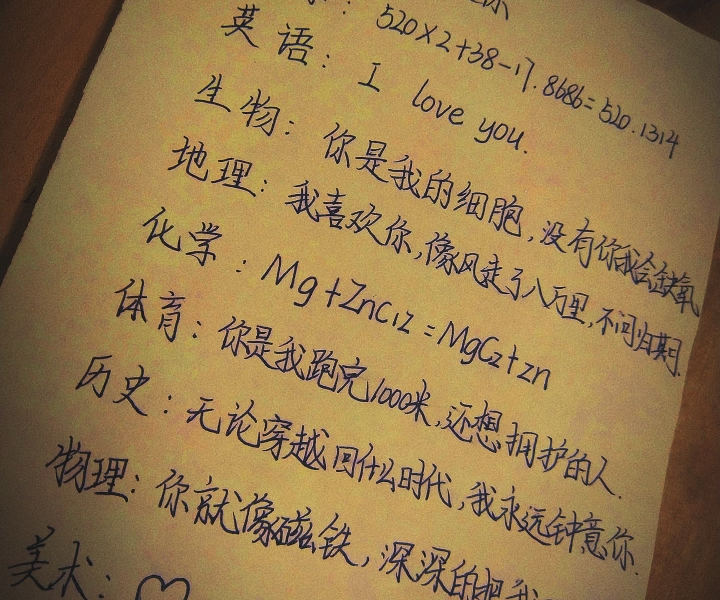 520×2+38-17.8686=520.1314
英语: I love you.
生物: 你是我的细胞,没有你我会缺氧
地理: 我喜欢你,像风走了八万里,不问归期.
化学: Mg+ZnCl2=MgCl2+zn
体育: 你是我跑完1000米,还想拥护的人.
历史: 无论穿越回什么时代,我永远钟意你.
物理: 你就像磁铁,深深的把我
美术: ♡